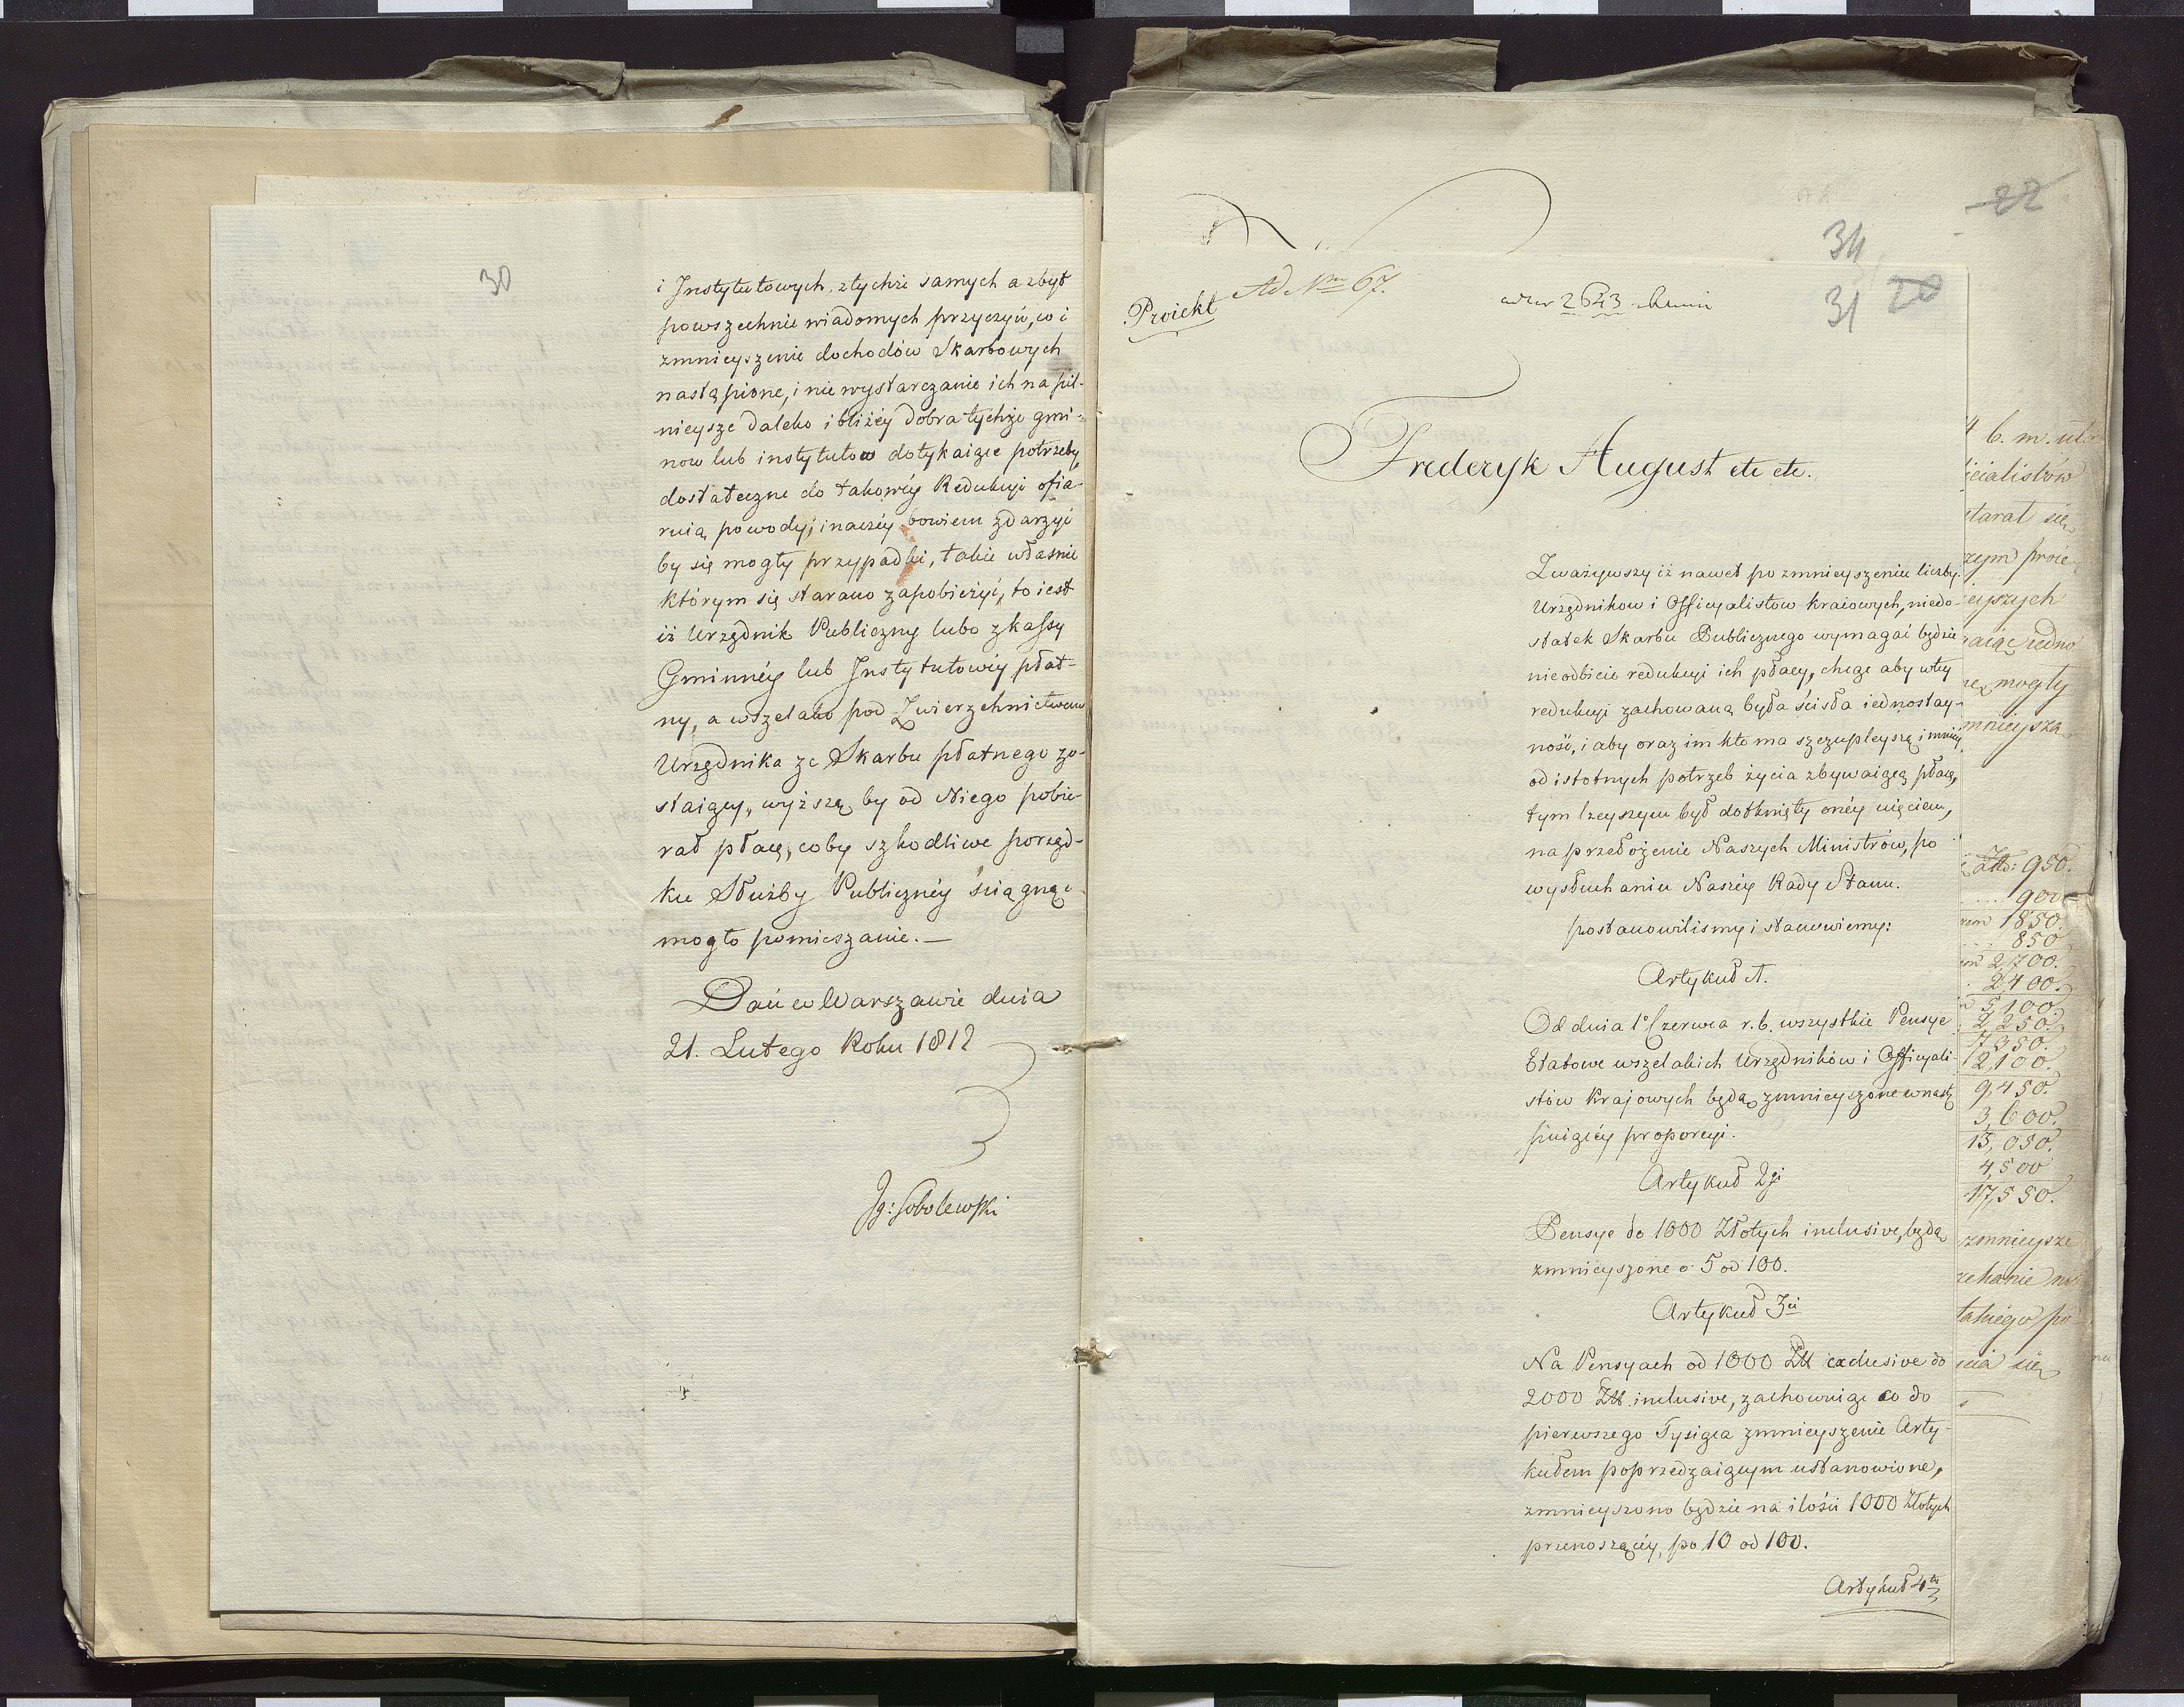 30
i Instytutowych, z tychże samych a zbyt
powszechnie wiadomych przyczyń, co i
zmnieyszenie dochodów Skarbowych
nastąpione, i nie wystarczanie ich na pil-
nieysze daleko i bliżéy dobra tychże gmi-
now lub instytutow dotykaiące potrzeby,
dostateczne do takowéy Redukcyi ofia-
ruią powody; inaczéy bowiem zdarzyć
by się mogły przypadki, takie własnie
którym się starano zapobieżyć, to iest
iż Urzędnik Publiczny lubo z kassy
Gminnéy lub Instytutowéy płat-
ny, a wszelako pod Zwierzchnictwem
Urzędnika ze Skarbu płatnego zo-
staiący, wyższą by od Niego pobie-
rał płacę, coby szkodliwe porząd-
ku Służby Publicznéy sciągnąć
mogło pomieszanie. —
Dań w Warszawie dnia
21. Lutego Roku 1812
Ig: Sobolewski
22
34
31 20
Ad Nrm 67.
2643
Proiekt
Frederyk August etc etc.
Zważywszy iż nawet po zmnieyszeniu liczby
Urzędnikow i Officyalistow kraiowych, niedo-
statek Skarbu Publicznego wymagać będzie
nieodbicie redukcyi ich płacy, chcąc aby w tey
redukcyi zachowaną była ścisła iednostay-
ność, i aby oraz im kto ma szczupleyszą i mniey
od istotnych potrzeb życia zbywaiącą płacę,
tym lżeyszym był dotknięty onéy ujęciem,
na przełożenie Naszych Ministrów, po
wysłuchaniu Naszéy Rady Stanu.
postanowilismy i stanowiemy:
Artykuł 1.
Od dnia 1o Czerwca r. b. wszystkie Pensye
Etatowe wszelakich Urzędników i Officyali-
stów Krajowych będą zmnieyszone w nastę
puiącéy proporcyi.
Artykuł 2gi
Pensye do 1000 Złotych inclusive, będą
zmnieyszone o 5 od 100.
Artykuł 3ci
Na Pensyach od 1000 Złł exclusive do
2000 Złł inclusive, zachowuiąc co do
pierwszego Tysiąca zmnieyszenie Arty-
kułem poprzedzaiącym ustanowione,
zmnieyszono będzie na ilości 1000 Złotych
przenoszącéy, po 10 od 100.
Artykuł 4ty
b. m. uło
icialistów
starał się
czym proie
eyszych
aiąc iedno
mogły
mnieysza
Złł: 950.
900
1850.
850
2,700.
2,400.
5,100.
2,250.
7350.
2,100.
9,450.
3,600.
13,050.
4,500
17,550.
zmnieysze
chanie
takiego po
cia się